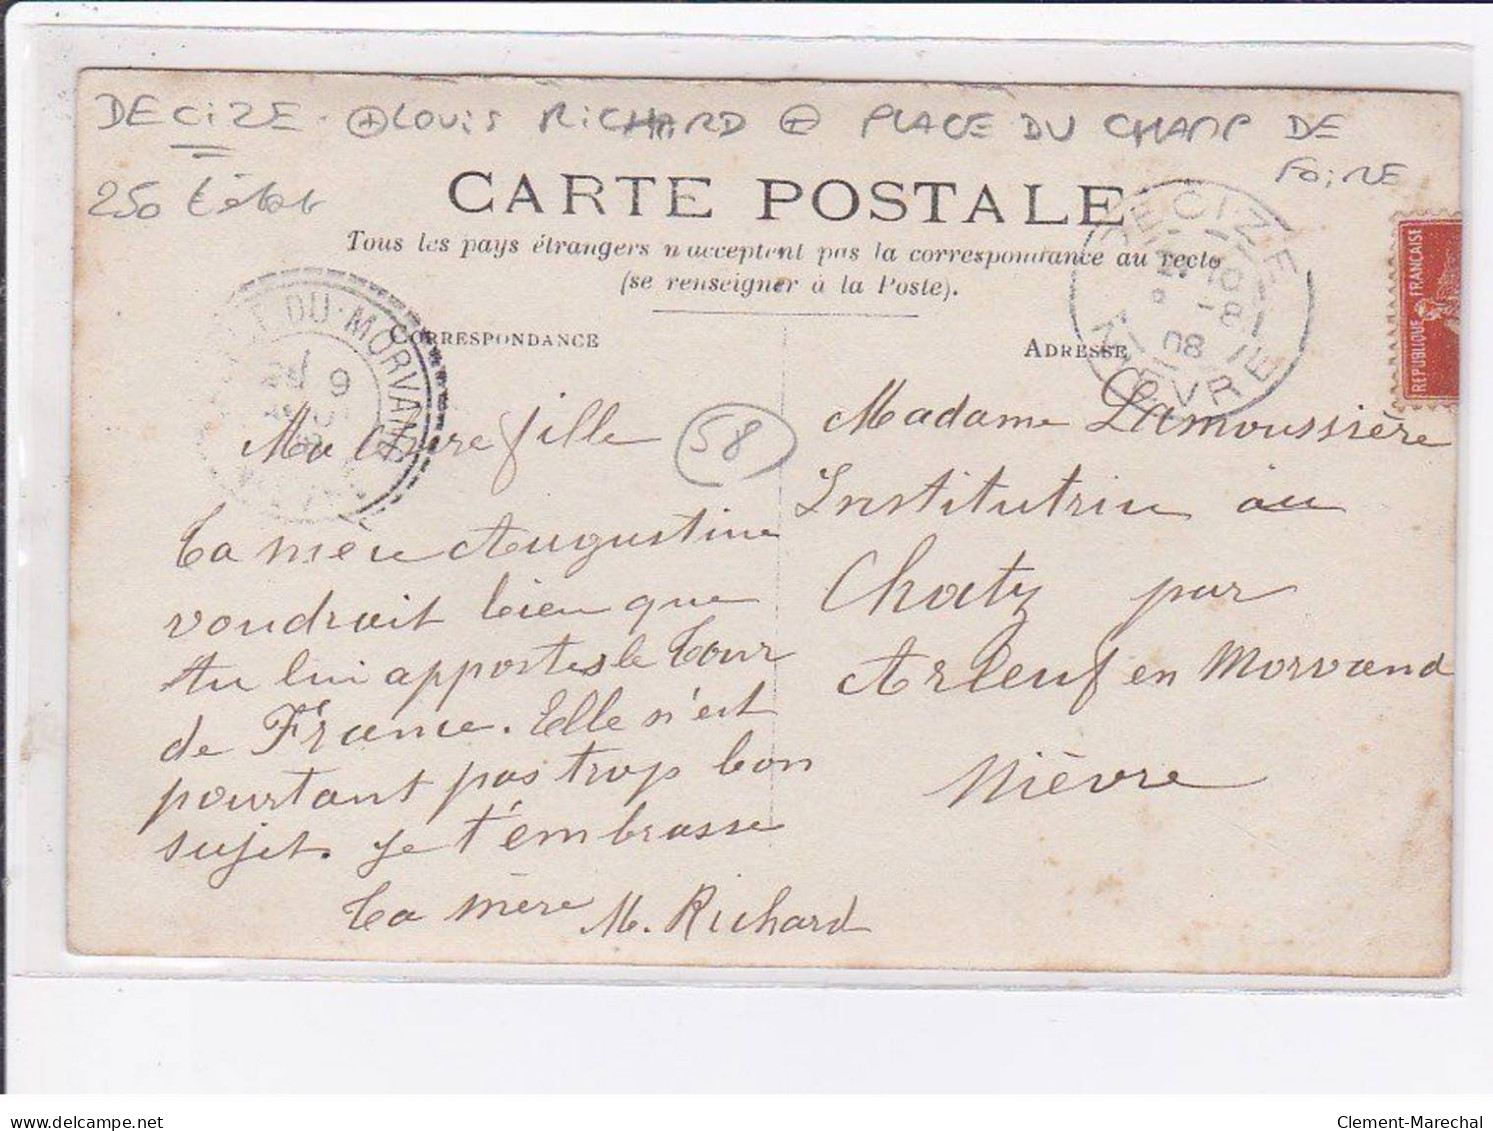 DECIZE - LOUIS RICHARD PLACE DU CHAMP DE
FOIRE
250
CARTE POSTALE
Tous les pays étrangers n'acceptent pas la correspondance au recto
(se renseigner à la Poste).
CORRESPONDANCE
ADRESSE
DECIZE
10
-8
08
NIEVRE
DU-MORVAND
9
REPUBLIQUE FRANCAISE
58
Ma chère fille
Ta mère Augustine
voudrait bien que
tu lui apportes le Tour
de France. Elle n'est
pourtant pas trop bon
sujet. Je t'embrasse
Ta mère M. Richard
Madame Lamoussière
Institutrice au
Chaty par
Arleuf en Morvand
Nièvre
www.delcampe.net
Clement-Marechal